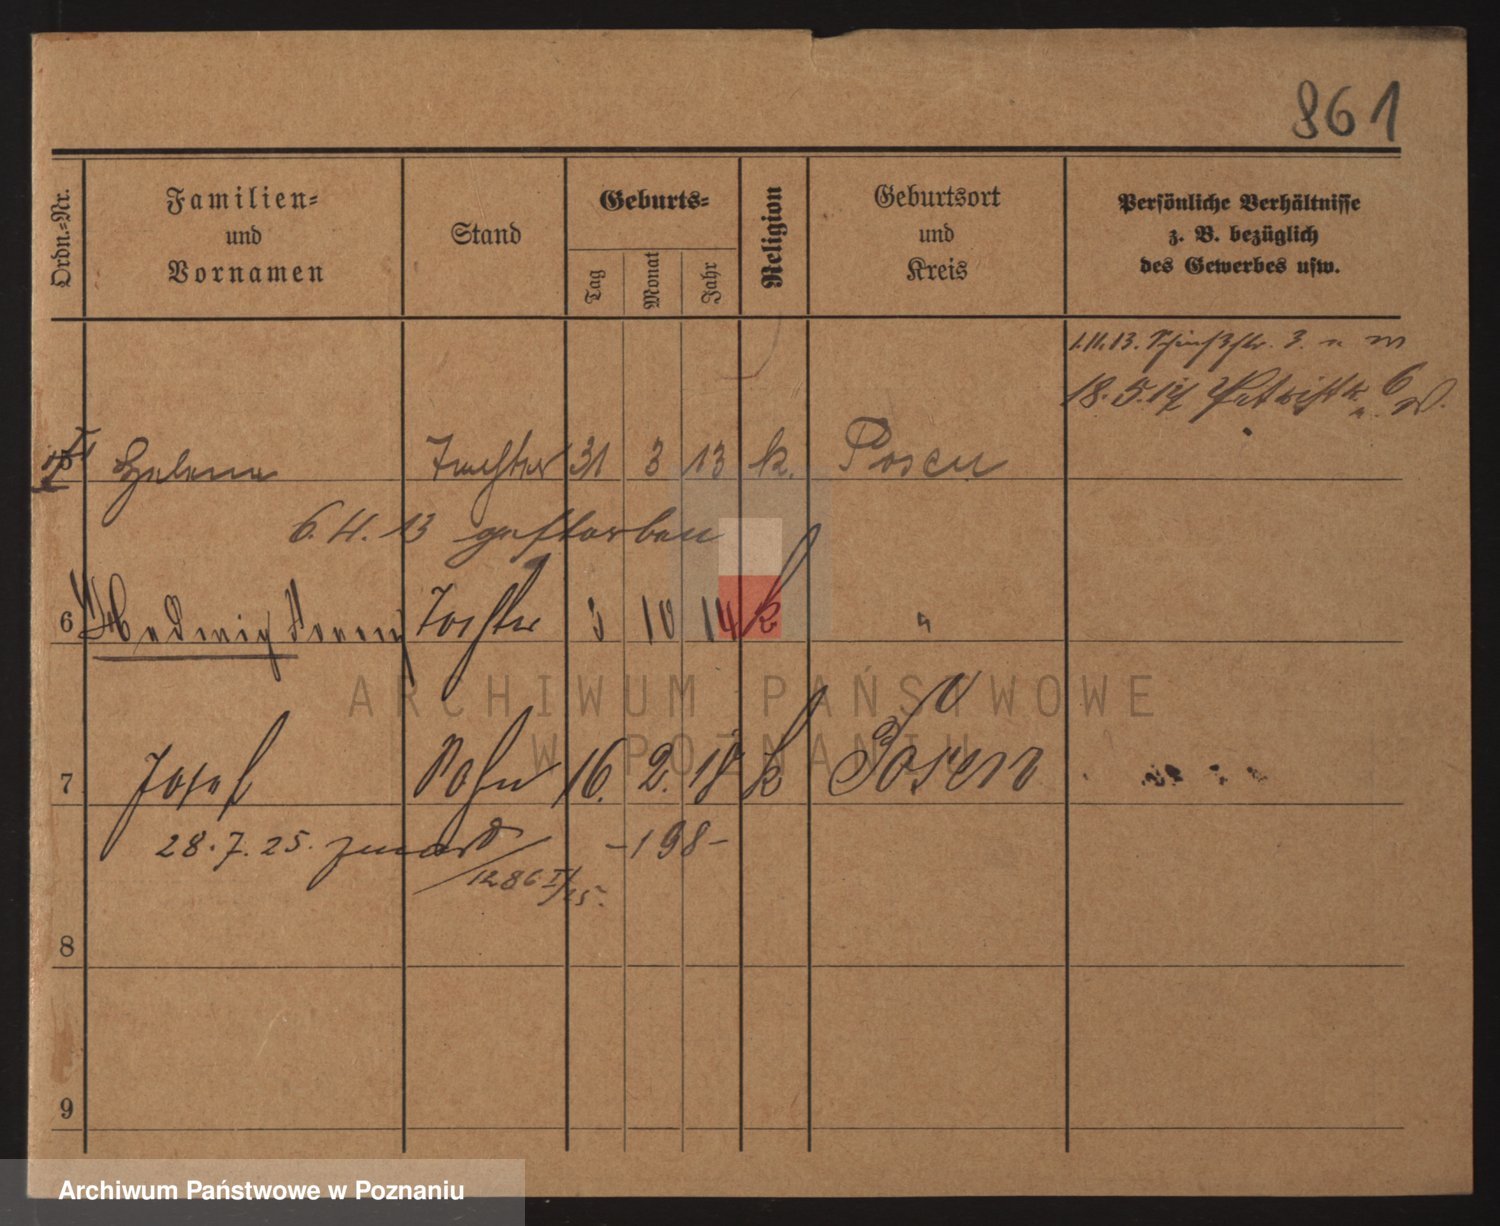 861
Ordn.-Nr.
Familien-
und
Vornamen
Stand
Geburts-
Tag
Monat
Jahr
Religion
Geburtsort
und
Kreis
Persönliche Verhältnisse
z. B. bezüglich
des Gewerbes usw.
1.11.13. 3.
18.5.17 6
5 Helena Tochter 31 3 13 k. Posen
6.4.13 gestorben
6 Hedwig Tochter 3 10 14 k "
7 Josef Sohn 16. 2. 18 k Posen
28.7.25. -198-
1286 I/25.
8
9
ARCHIWUM PAŃSTWOWE
W POZNANIU
Archiwum Państwowe w Poznaniu